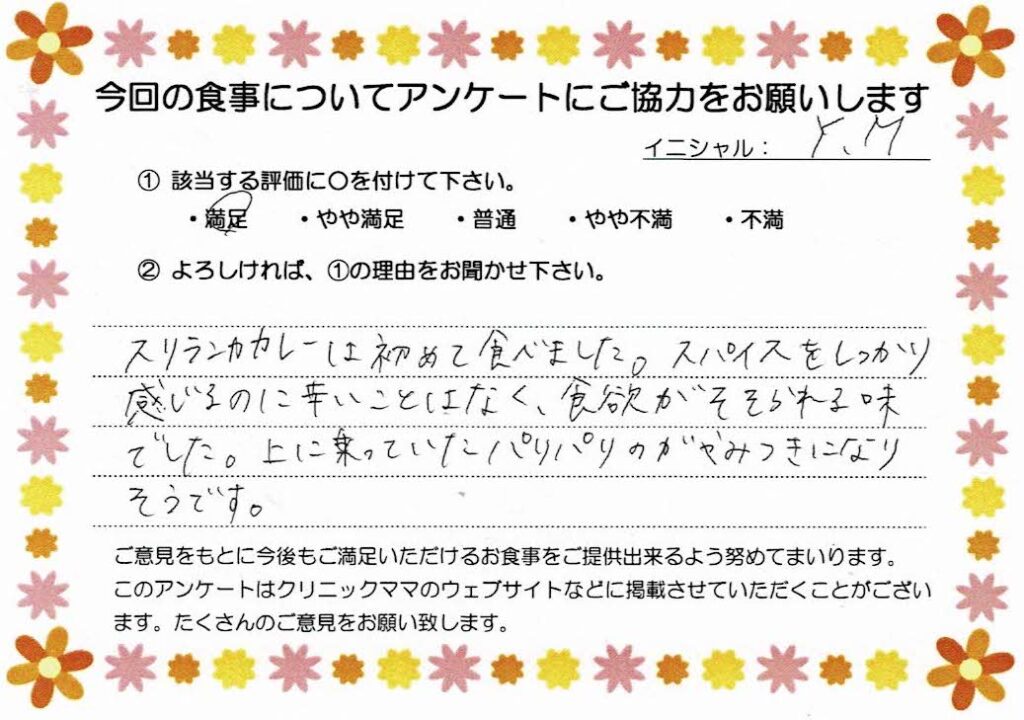 今回の食事についてアンケートにご協力をお願いします
イニシャル： Y、M
① 該当する評価に〇を付けて下さい。
・満足 ・やや満足 ・普通 ・やや不満 ・不満
② よろしければ、①の理由をお聞かせ下さい。
スリランカカレーは初めて食べました。スパイスをしっかり
感じるのに辛いことはなく、食欲がそそられる味
でした。上に乗っていたパリパリのがやみつきになり
そうです。
ご意見をもとに今後もご満足いただけるお食事をご提供出来るよう努めてまいります。
このアンケートはクリニックママのウェブサイトなどに掲載させていただくことがござい
ます。たくさんのご意見をお願い致します。